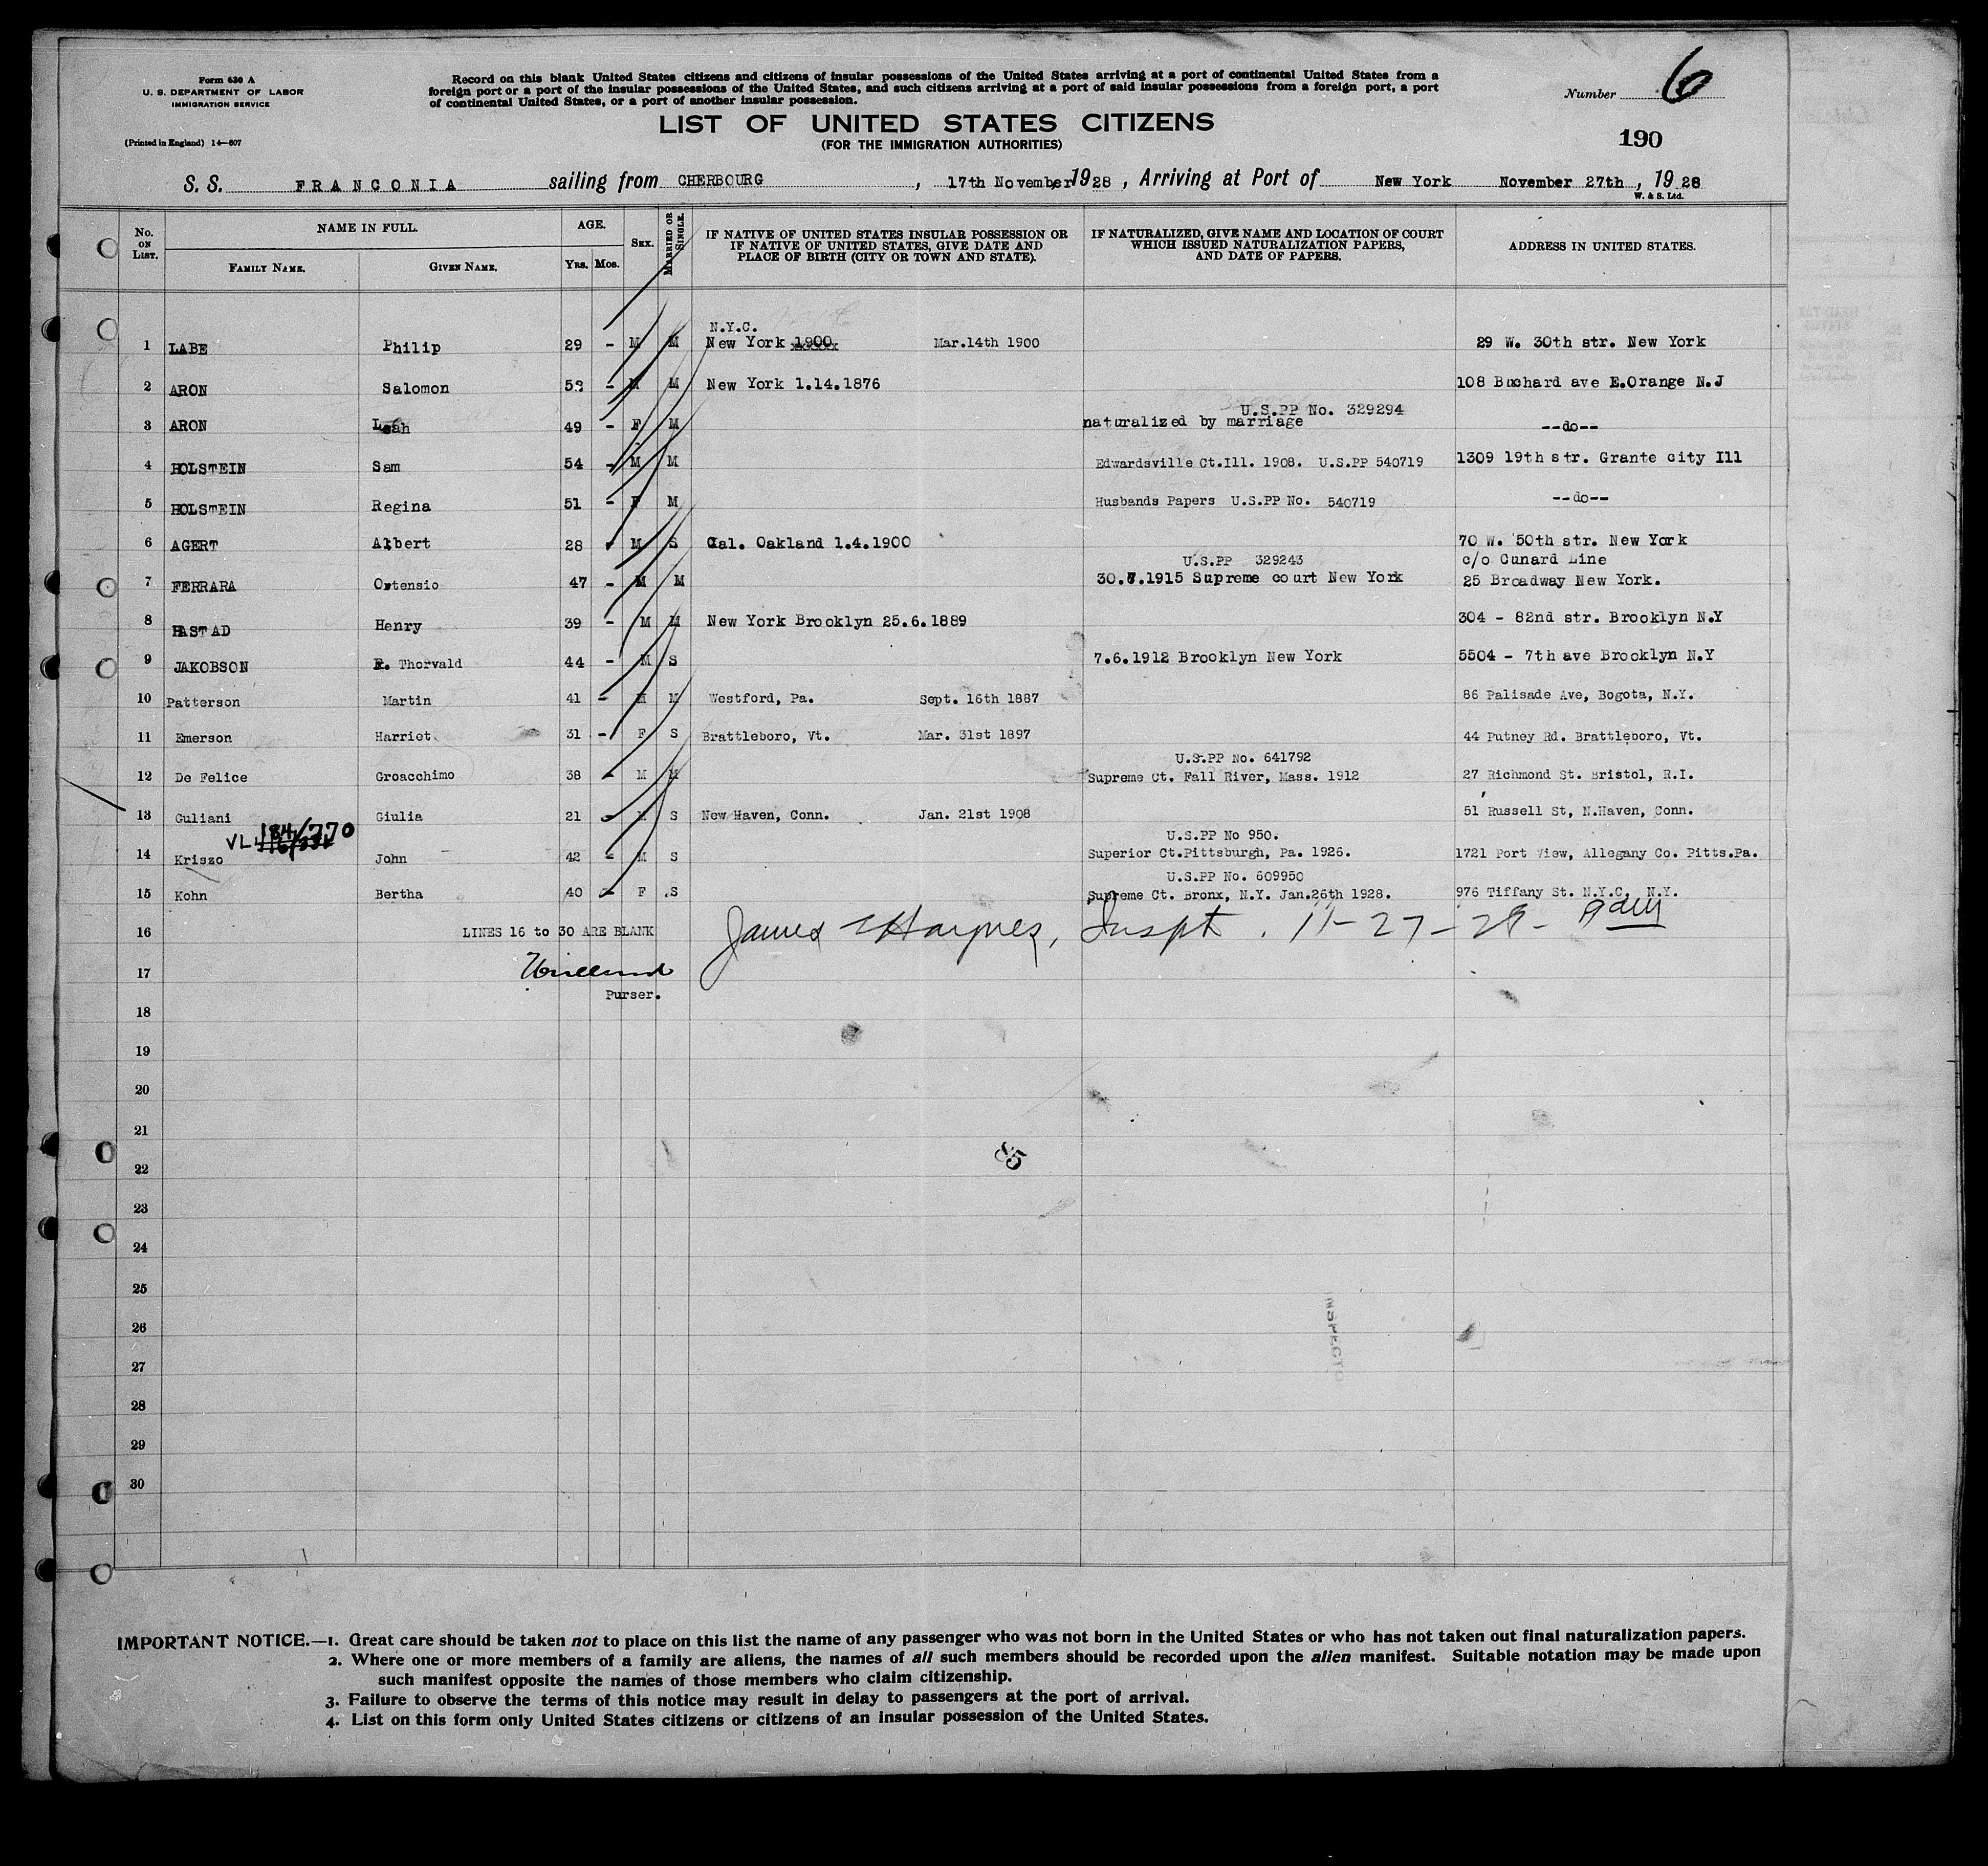 Form 630 A
U. S. DEPARTMENT OF LABOR
IMMIGRATION SERVICE
(Printed in England) 14—607
Record on this blank United States citizens and citizens of insular possessions of the United States arriving at a port of continental United States from a
foreign port or a port of the insular possessions of the United States, and such citizens arriving at a port of said insular possessions from a foreign port, a port
of continental United States, or a port of another insular possession.
Number 6
LIST OF UNITED STATES CITIZENS
(FOR THE IMMIGRATION AUTHORITIES)
190
S. S. FRANCONIA sailing from CHERBOURG , 17th November, 1928 , Arriving at Port of New York November 27th , 1928
W. & S. Ltd.
No. ON LIST. NAME IN FULL. FAMILY NAME. GIVEN NAME. AGE. YRS. MOS. SEX. MARRIED OR SINGLE. IF NATIVE OF UNITED STATES INSULAR POSSESSION OR IF NATIVE OF UNITED STATES, GIVE DATE AND PLACE OF BIRTH (CITY OR TOWN AND STATE). IF NATURALIZED, GIVE NAME AND LOCATION OF COURT WHICH ISSUED NATURALIZATION PAPERS, AND DATE OF PAPERS. ADDRESS IN UNITED STATES.
N.Y.C.
1 LABE Philip 29 - M M New York 1900 Mar.14th 1900 29 W. 30th str. New York
2 ARON Salomon 52 - M M New York 1.14.1876 108 Buchard ave E.Orange N.J
U.S.PP No. 329294
3 ARON Leah 49 - F M naturalized by marriage --do--
4 HOLSTEIN Sam 54 - M M Edwardsville Ct.Ill. 1908. U.S.PP 540719 1309 19th str. Grante city Ill
5 HOLSTEIN Regina 51 - F M Husbands Papers U.S.PP No. 540719 --do--
6 AGERT Albert 28 - M S Cal. Oakland 1.4.1900 70 W. 50th str. New York
U.S.PP 329243 c/o Cunard Line
7 FERRARA Ortensio 47 - M M 30.7.1915 Supreme court New York 25 Broadway New York.
8 HASTAD Henry 39 - M M New York Brooklyn 25.6.1889 304 - 82nd str. Brooklyn N.Y
9 JAKOBSON Thorvald 44 - M S 7.6.1912 Brooklyn New York 5504 - 7th ave Brooklyn N.Y
10 Patterson Martin 41 - M M Westford, Pa. Sept. 16th 1887 86 Palisade Ave, Bogota, N.Y.
11 Emerson Harriet 31 - F S Brattleboro, Vt. Mar. 31st 1897 44 Putney Rd. Brattleboro, Vt.
U.S.PP No. 641792
12 De Felice Groacchimo 38 - M M Supreme Ct. Fall River, Mass. 1912 27 Richmond St. Bristol, R.I.
13 Guliani Giulia 21 - M S New Haven, Conn. Jan. 21st 1908 51 Russell St, N.Haven, Conn.
VL 184/770
U.S.PP No 950.
14 Kriszo John 42 - M S Superior Ct.Pittsburgh, Pa. 1926. 1721 Port View, Allegany Co. Pitts.Pa.
U.S.PP No. 609950
15 Kohn Bertha 40 - F S Supreme Ct. Bronx, N.Y. Jan.26th 1928. 976 Tiffany St. N.Y.C. N.Y.
16 LINES 16 to 30 ARE BLANK James Haynes, Inspt. 11-27-28-
17
Purser.
18
19
20
21
22
85
23
24
25
26
27
28
29
30
IMPORTANT NOTICE.—1. Great care should be taken not to place on this list the name of any passenger who was not born in the United States or who has not taken out final naturalization papers.
2. Where one or more members of a family are aliens, the names of all such members should be recorded upon the alien manifest. Suitable notation may be made upon
such manifest opposite the names of those members who claim citizenship.
3. Failure to observe the terms of this notice may result in delay to passengers at the port of arrival.
4. List on this form only United States citizens or citizens of an insular possession of the United States.